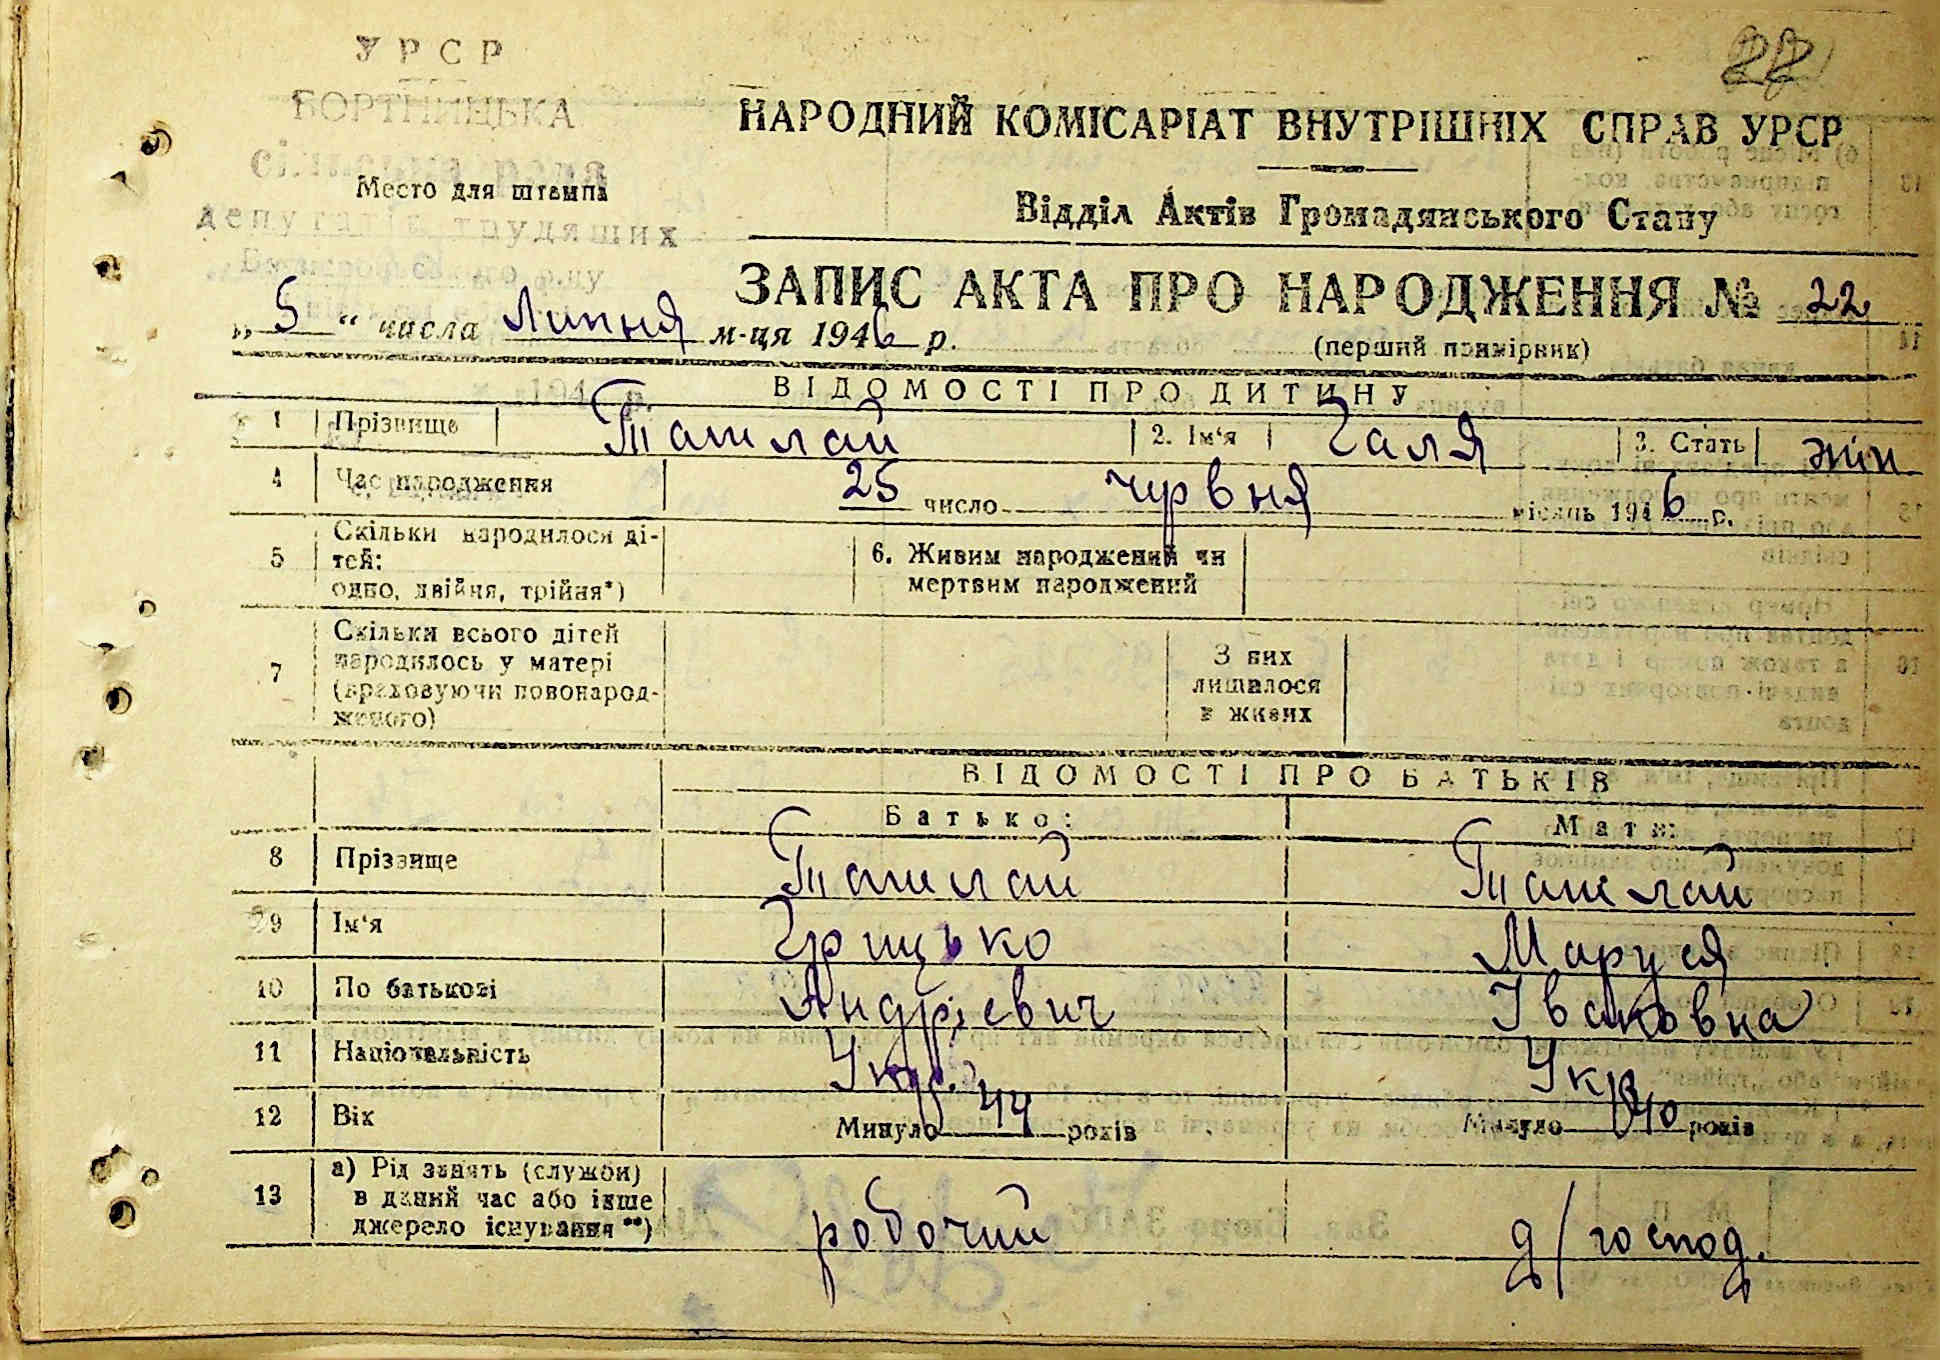 УРСР
БОРТНИЦЬКА
сільська рада
депутатів трудящих
22
НАРОДНИЙ КОМІСАРІАТ ВНУТРІШНІХ СПРАВ УРСР
Место для штампа
Відділ Актів Громадянського Стану
ЗАПИС АКТА ПРО НАРОДЖЕННЯ № 22
„5“ числа Липня м-ця 1946 р.
(перший примірник)
ВІДОМОСТІ ПРО ДИТИНУ
1 Прізвище Ташлай 2. Ім‘я Галя 3. Стать жін
4 Час народження 25 число червня місяць 1946 р.
5 Скільки народилося ді-
тей:
одно, двійня, трійня*)
6. Живим народжений чи
мертвим народжений
7 Скільки всього дітей
народилось у матері
(враховуючи новонарод-
женого)
З них
лишилося
в живих
ВІДОМОСТІ ПРО БАТЬКІВ
Батько: Мати:
8 Прізвище Ташлай Ташлай
9 Ім‘я Грицько Маруся
10 По батькові Андрієвич Івановна
11 Національність Укр. Укр
12 Вік Минуло 44 років Минуло 40 років
13 а) Рід занять (служби)
в даний час або інше
джерело існування**)
робочий д/господ.